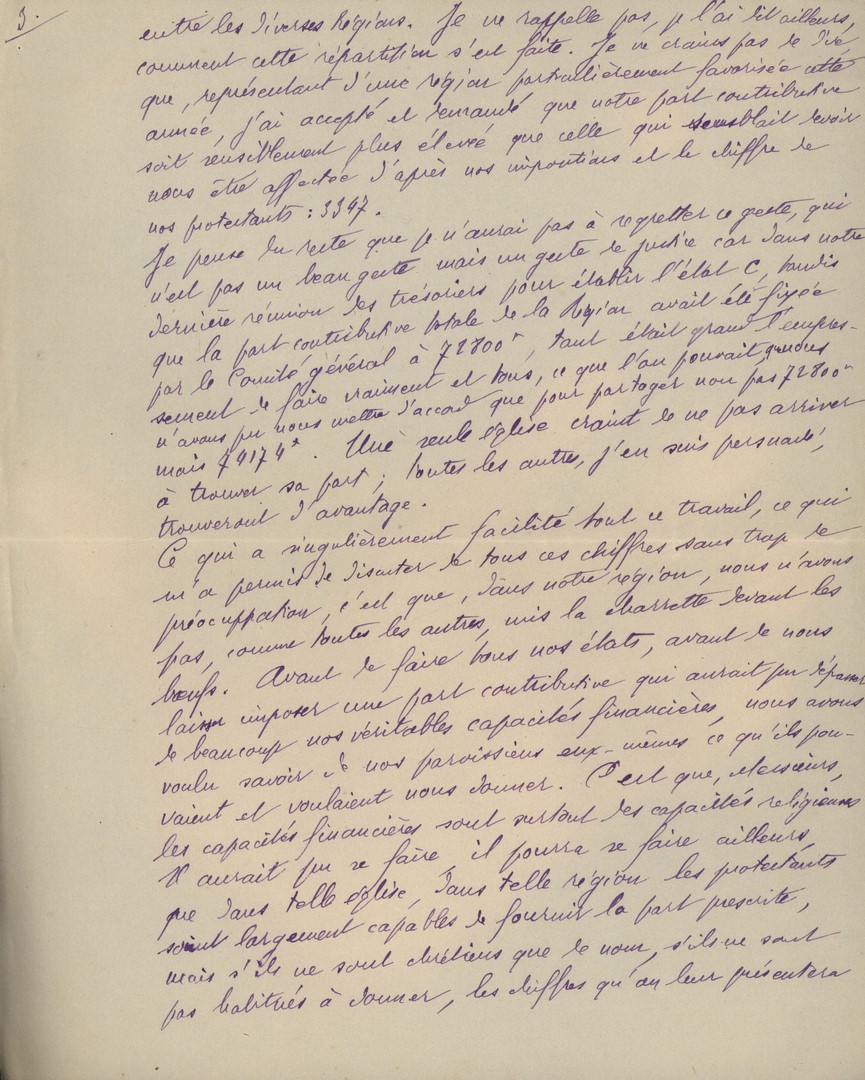 3.
entre les diverses Régions. Je ne rappelle pas, je l'ai dit ailleurs,
comment cette répartition s'est faite. Je ne crains pas de dire
que, représentant d'une région particulièrement favorisée cette
année, j'ai accepté et demandé que notre part contributive
soit sensiblement plus élevée que celle qui semblait devoir
nous être affectée d'après nos impositions et le chiffre de
nos protestants : 3347.
Je pense du reste que je n'aurai pas à regretter ce geste, qui
n'est pas un beau geste mais un geste de justice car dans notre
dernière réunion des trésoriers pour établir l'état C, tandis
que la part contributive totale de la Région avait été fixée
par le Comité général à 72800 f, tant était grand l'empres-
sement de faire vraiment et tous, ce que l'on pouvait, que nous
n'avons pu nous mettre d'accord que pour partager non pas 72800 f
mais 74174 f. Une seule église craint de ne pas arriver
à trouver sa part ; toutes les autres, j'en suis persuadé,
trouveront d'avantage.
Ce qui a singulièrement facilité tout ce travail, ce qui
m'a permis de discuter de tous ces chiffres sans trop de
préoccupation, c'est que, dans notre région, nous n'avons
pas, comme toutes les autres, mis la charrette devant les
bœufs. Avant de faire tous nos états, avant de nous
laisser imposer une part contributive qui aurait pu dépasser
de beaucoup nos véritables capacités financières, nous avons
voulu savoir de nos paroissiens eux-mêmes ce qu'ils pou-
vaient et voulaient nous donner. C'est que, Messieurs,
les capacités financières sont surtout des capacités religieuses
Il aurait pu se faire, il pourra se faire ailleurs,
que dans telle église, dans telle région les protestants
soient largement capables de fournir la part prescrite,
mais s'ils ne sont chrétiens que de nom, s'ils ne sont
pas habitués à donner, les chiffres qu'on leur présentera